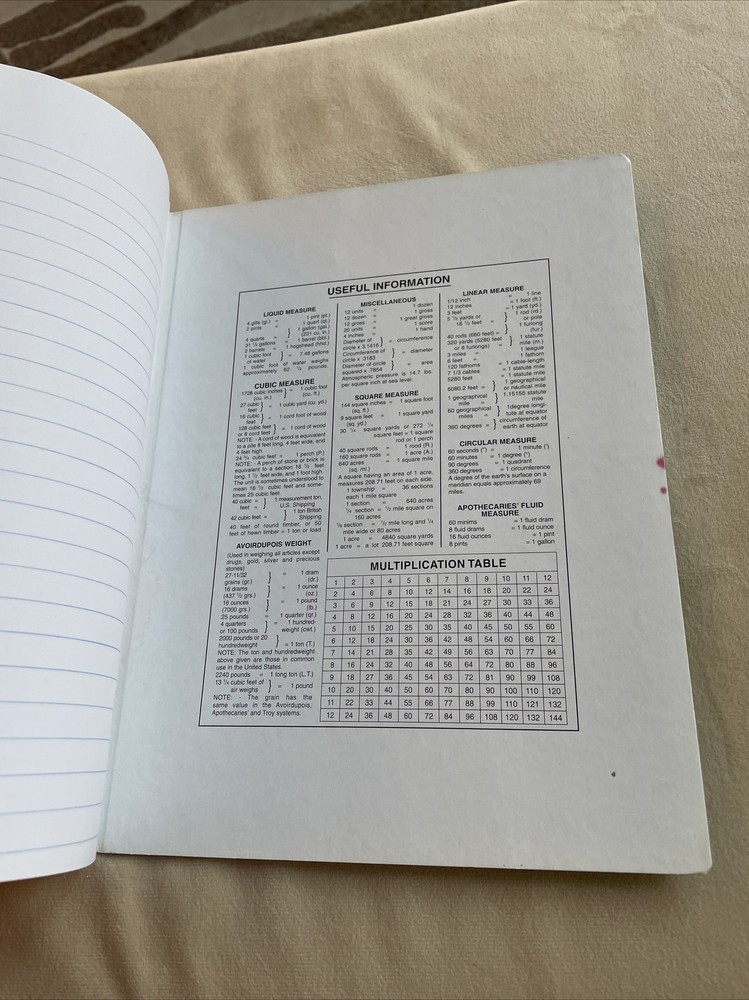 USEFUL INFORMATION
LIQUID MEASURE
4 gills (gi.) = 1 pint (pt.)
2 pints = 1 quart (qt.)
4 quarts = } 1 gallon (gal.) (231 cu. in.)
31 ½ gallons = 1 barrel (bbl.)
2 barrels = 1 hogshead (hhd.)
1 cubic foot of water } = 7.48 gallons
1 cubic foot of water weighs
approximately 62 ½ pounds.
CUBIC MEASURE
1728 cubic inches (cu. in.) } = 1 cubic foot (cu. ft.)
27 cubic feet } = 1 cubic yard (cu. yd.)
16 cubic feet } = 1 cord foot of wood
128 cubic feet or 8 cord feet } = 1 cord of wood
NOTE: - A cord of wood is equivalent
to a pile 8 feet long, 4 feet wide, and
4 feet high.
24 ¾ cubic feet = 1 perch (P.)
NOTE: - A perch of stone or brick is
equivalent to a section 16 ½ feet
long, 1 ½ feet wide, and 1 foot high.
The unit is sometimes understood to
mean 16 ½ cubic feet and some-
times 25 cubic feet.
40 cubic feet = } 1 measurement ton, U.S. Shipping
42 cubic feet = } 1 ton British Shipping
40 feet of round timber, or 50
feet of hewn timber = 1 ton or load
AVOIRDUPOIS WEIGHT
(Used in weighing all articles except
drugs, gold, silver and precious
stones)
27-11/32 grains (gr.) } = 1 dram (dr.)
16 drams (437 ½ grs.) } = 1 ounce (oz.)
16 ounces (7000 grs.) } = 1 pound (lb.)
25 pounds = 1 quarter (qr.)
4 quarters or 100 pounds } = 1 hundred-weight (cwt.)
2000 pounds or 20 hundredweight } = 1 ton (T.)
NOTE: The ton and hundredweight
above given are those in common
use in the United States.
2240 pounds = 1 long ton (L.T.)
13 ¼ cubic feet of air weighs } = 1 pound
NOTE: - The grain has the
same value in the Avoirdupois,
Apothecaries' and Troy systems.
MISCELLANEOUS
12 units = 1 dozen
12 dozen = 1 gross
12 gross = 1 great gross
20 units = 1 score
4 inches = 1 hand
Diameter of circle x 3.1416 } = circumference
Circumference of circle x .3183 } = diameter
Diameter of circle squared x .7854 } = area
Atmospheric pressure is 14.7 lbs.
per square inch at sea level.
SQUARE MEASURE
144 square inches = 1 square foot
(sq. ft.)
9 square feet = 1 square yard
(sq. yd.)
30 ¼ square yards or 272 ¼
square feet = 1 square
rod or 1 perch
40 square rods = 1 rood (R.)
160 square rods = 1 acre (A.)
640 acres = 1 square mile
(sq. mi.)
A square having an area of 1 acre,
measures 208.71 feet on each side.
1 township = 36 sections
each 1 mile square
1 section = 640 acres
¼ section = ½ mile square on
160 acres
⅛ section = ½ mile long and ¼
mile wide or 80 acres
1 acre = 4840 square yards
1 acre = a lot 208.71 feet square
LINEAR MEASURE
1/12 inch = 1 line
12 inches = 1 foot (ft.)
3 feet = 1 yard (yd.)
5 ½ yards or 16 ½ feet = } 1 rod (rd.) or pole
40 rods (660 feet) = } 1 furlong (fur.)
320 yards (5280 feet or 8 furlongs) = } 1 statute mile (m.)
3 miles = 1 league
6 feet = 1 fathom
120 fathoms = 1 cable-length
7 1/3 cables = 1 statute mile
5280 feet = 1 statute mile
6080.2 feet = } 1 geographical or nautical mile
1 geographical mile = } 1.15155 statute mile
60 geographical miles = } 1degree longi-tute at equator
360 degrees = } circumference of earth at equator
CIRCULAR MEASURE
60 seconds (") = 1 minute (')
60 minutes = 1 degree (°)
90 degrees = 1 quadrant
360 degrees = 1 circumference
A degree of the earth's surface on a
meridian equals approximately 69
miles.
APOTHECARIES' FLUID
MEASURE
60 minims = 1 fluid dram
8 fluid drams = 1 fluid ounce
16 fluid ounces = 1 pint
8 pints = 1 gallon
MULTIPLICATION TABLE
1 2 3 4 5 6 7 8 9 10 11 12
2 4 6 8 10 12 14 16 18 20 22 24
3 6 9 12 15 18 21 24 27 30 33 36
4 8 12 16 20 24 28 32 36 40 44 48
5 10 15 20 25 30 35 40 45 50 55 60
6 12 18 24 30 36 42 48 54 60 66 72
7 14 21 28 35 42 49 56 63 70 77 84
8 16 24 32 40 48 56 64 72 80 88 96
9 18 27 36 45 54 63 72 81 90 99 108
10 20 30 40 50 60 70 80 90 100 110 120
11 22 33 44 55 66 77 88 99 110 121 132
12 24 36 48 60 72 84 96 108 120 132 144